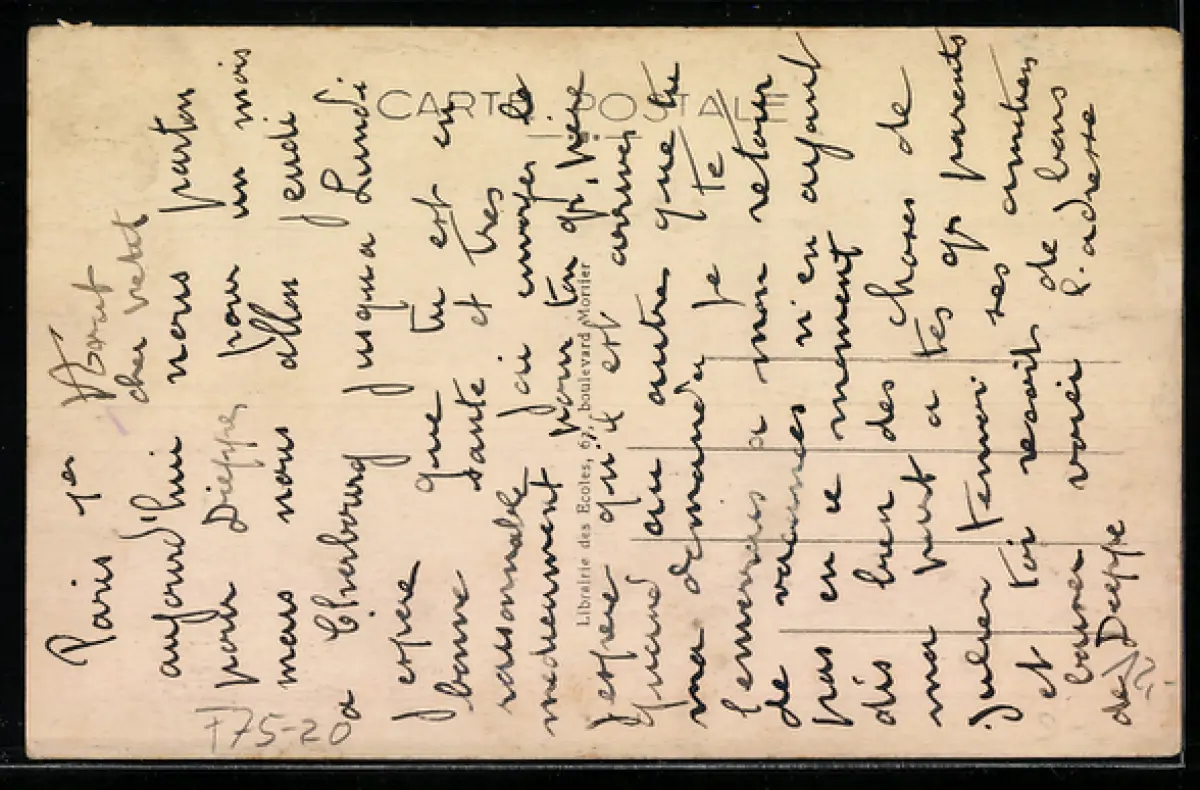 Paris 1er Aout
cher
aujourd'hui nous parton
pour Dieppe pour un mois
mais nous allon jeudi
a Cherbourg jusqua Lundi
J espere que tu est en
bonne sante et tres
raisonnable J ai envoyer le
medicament pour ton gr. Père
J espere qu'il est arriver
quand au autre que tu
ma demander Je te
l'emverras a mon retour
de vacances n'en ayant
pas en ce moment
dis bien des choses de
ma part a tes gr parents
Julien Fernoi ses amities
et toi recoit de bons
baiser voici l. adresse
de Dieppe
CARTE POSTALE
Librairie des Ecoles, 67, boulevard Mortier
175-20